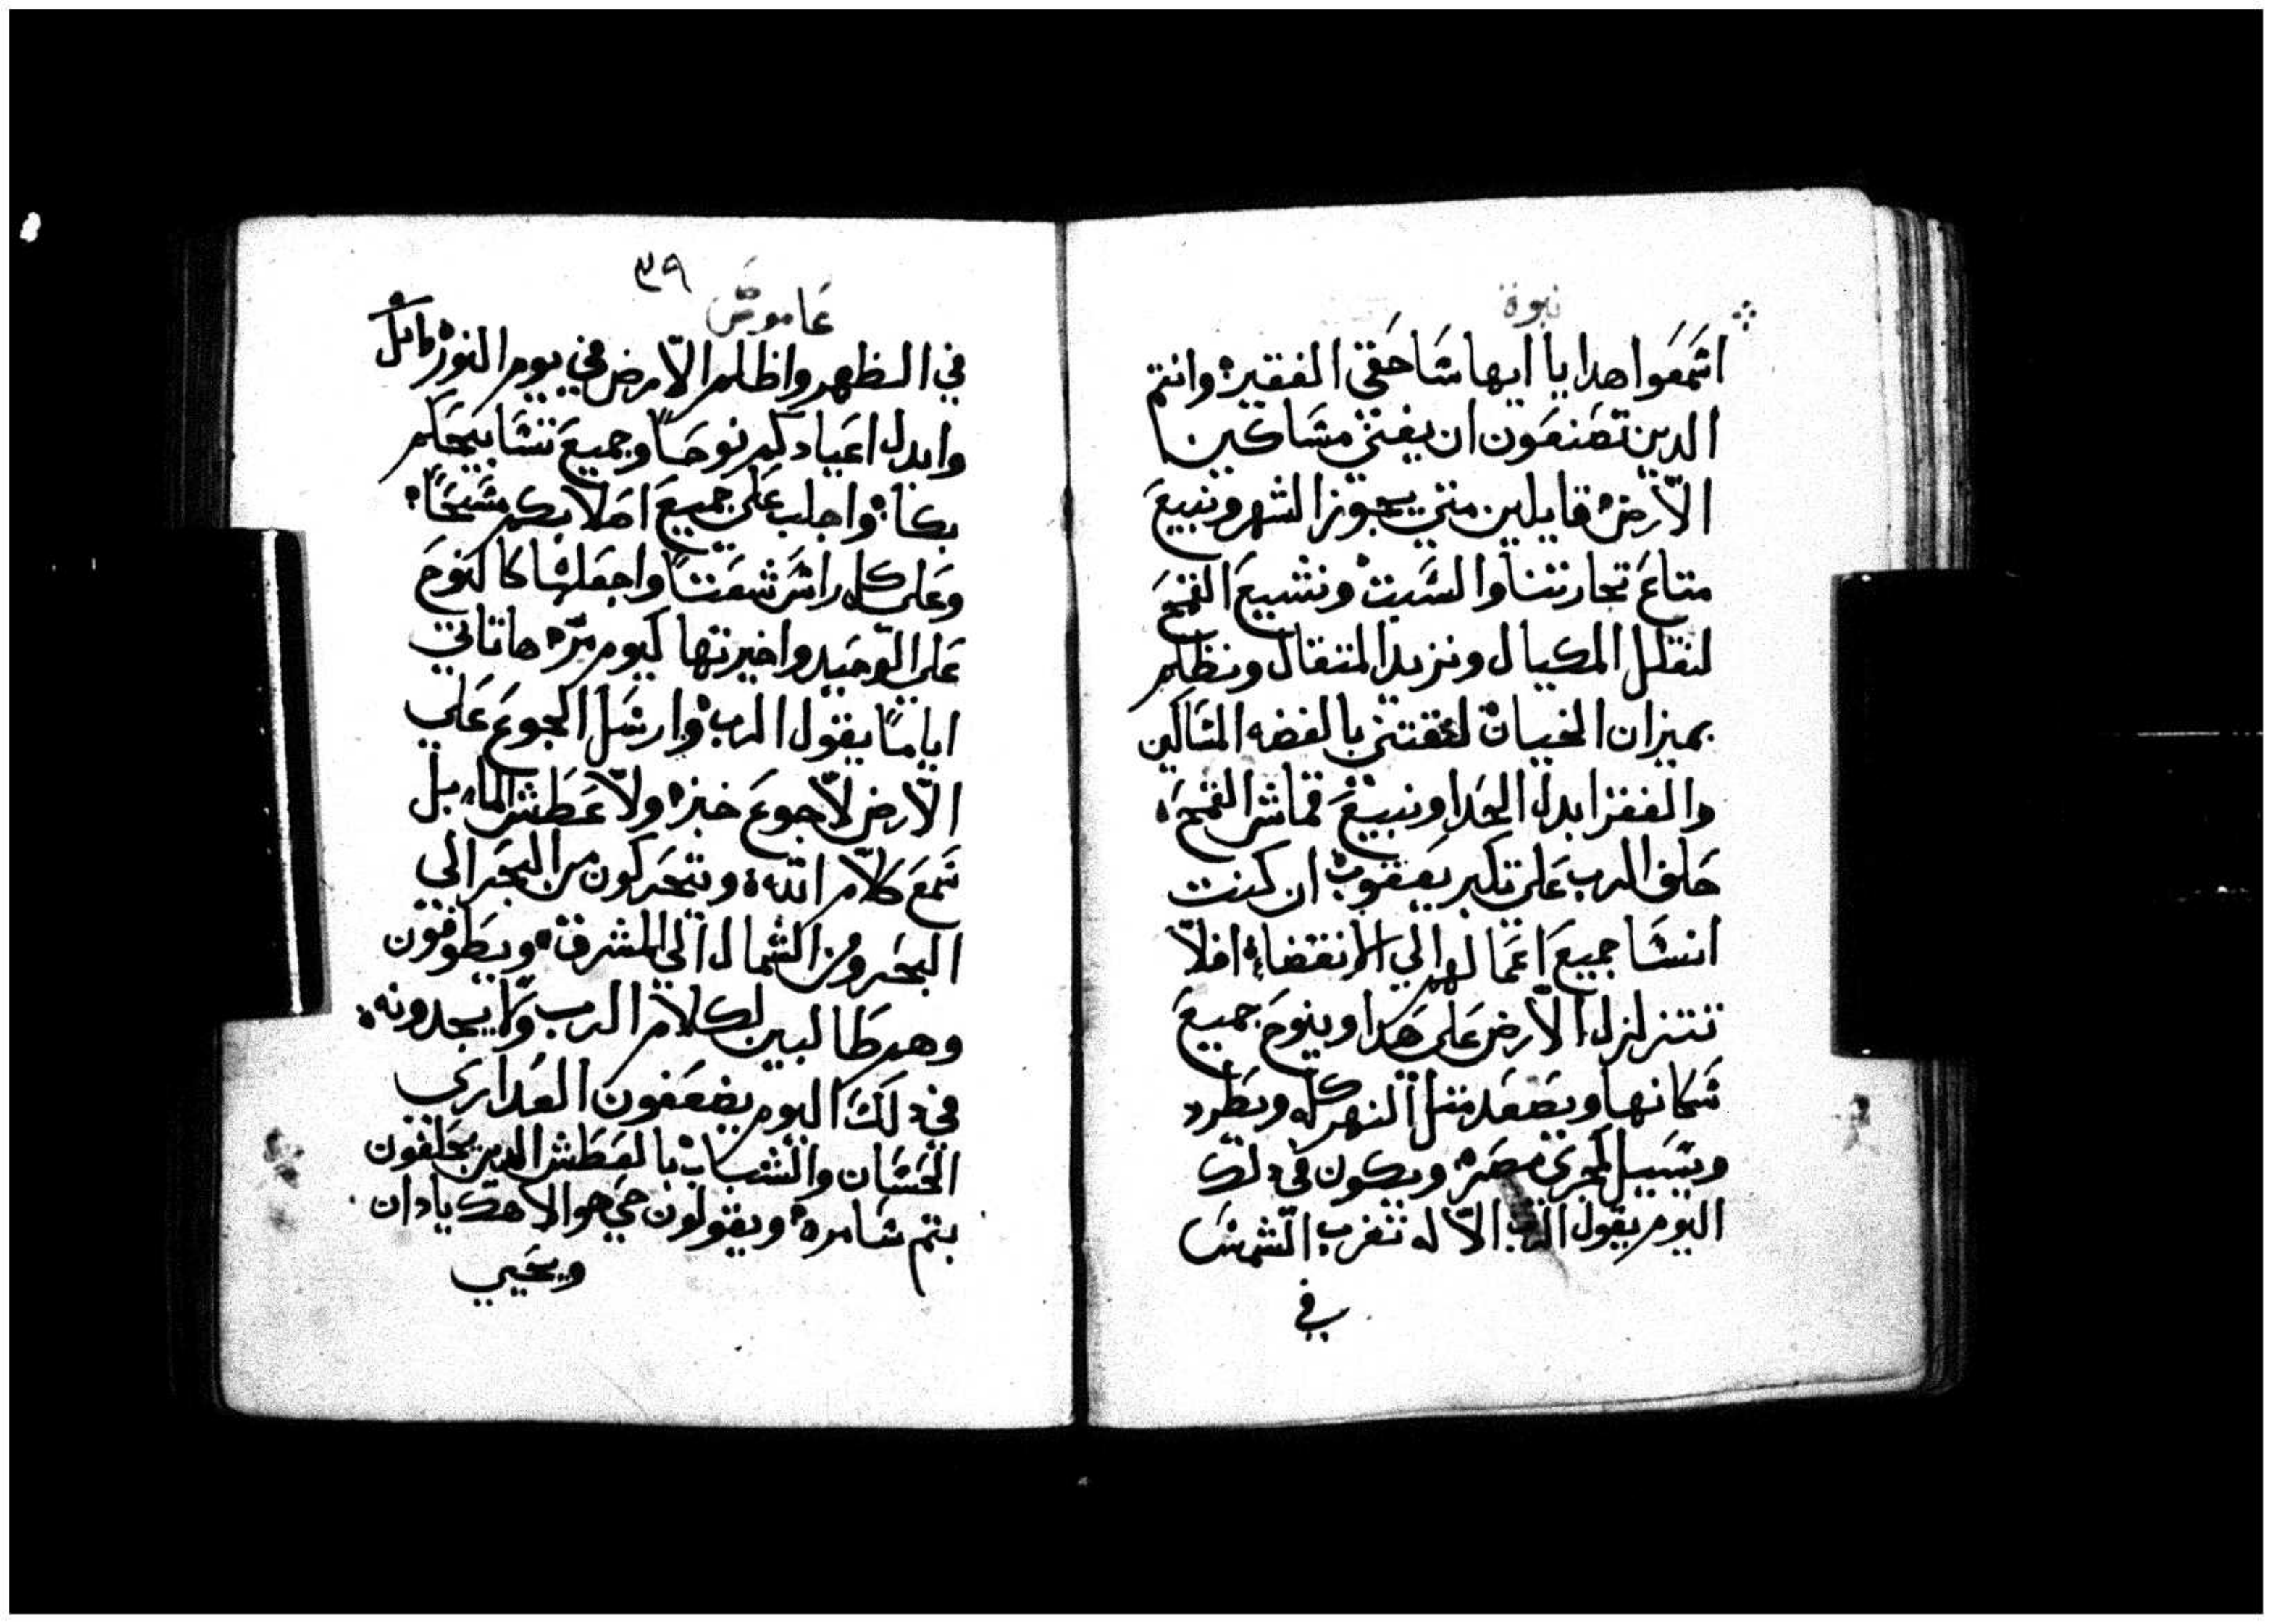 نبوة
اسمعوا هدا يا ايها ساحقى الفقير وانتم
الدين تصنعون ان يفنى مساكين
الارض قايلين متى يجوز الشهر ونبيع
متاع تجارتنا والسبت ونشيع القمح
لنقلل المكيال ونزيد المتقال ونظلم
بميزان الخيات لنقتني بالفضه المساكين
والفقرا بدل الحدا ونبيع قماش القمح
حلف الرب على تكبر يعقوب ان كنت
انسا جميع اعمالهم الي الانقضاء افلا
تتزلزل الارض على هدا وينوح جميع
سكانها ويصعد متل النهر كله ويطرد
ويسيل لمجرى مصر ويكون في دلك
اليوم يقول الرب الاله تغرب الشمس
في
٣٩
عاموص
في الظهر واظلم الارض في يوم النور
وابدل اعيادكم نوحا وجميع تسابيحكم
بكا واجلب على جميع احلابكم مسحا
وعلى كل راس شعتا واجعلها كالنوح
على الوحيد واخيرتها كيوم مره ها تاتي
اياما يقول الرب وارسل الجوع على
الارض لا جوع خبز ولا عطش الما بل
سمع كلام الله ويتحركون من البحر الي
البحر ومن الشمال الي المشرق ويطوفون
وهم طالبين لكلام الرب ولا يجدونه
في دلك اليوم يضعفون العداري
الحسان والشباب بالعطش الدين يحلفون
بتم سامره ويقولون حي هو الاهك يا دان
ويحيي